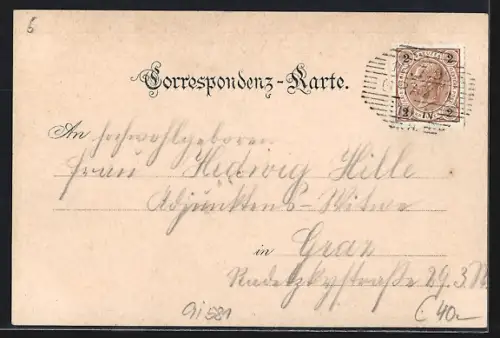 6
Correspondenz-Karte.
An hochwohlgeboren
Frau Hedwig Hille
Adjunktens-Witwe
in Graz
Radetzkystraße 29. 3.
91581
€ 40.-